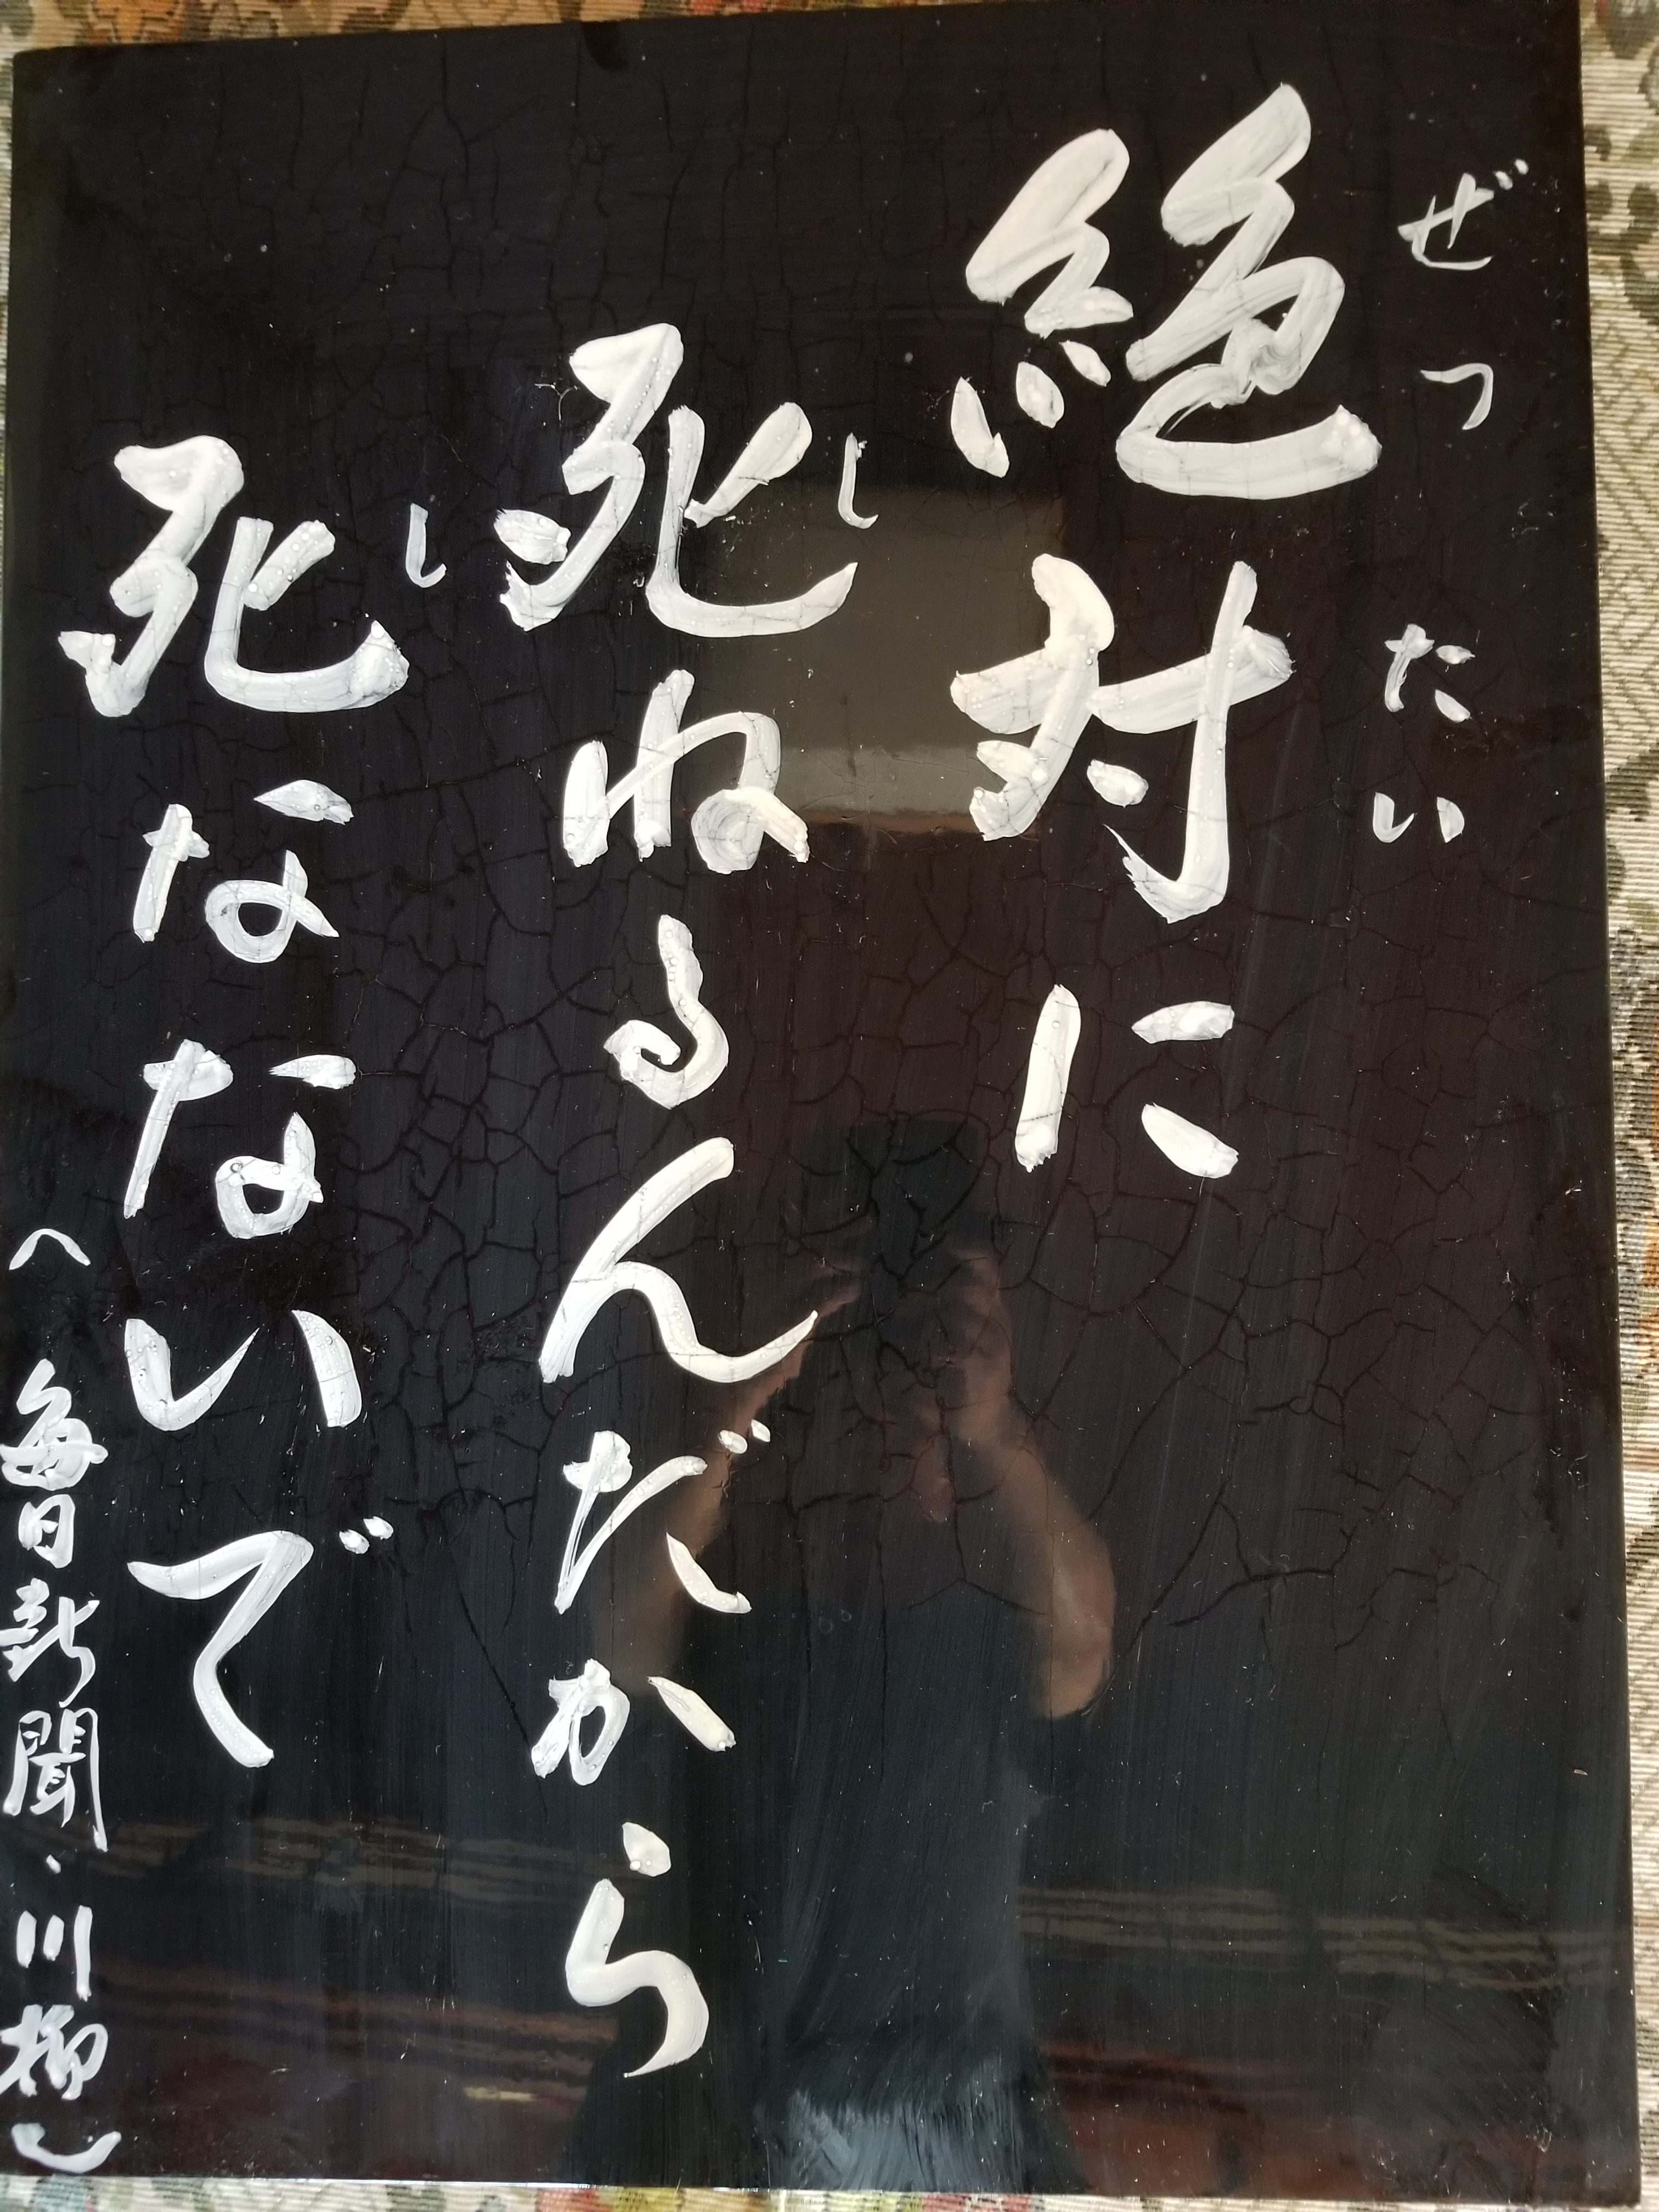 ぜったい
絶対に
し
死ねるんだから
し
死なないで
(毎日新聞・川柳)